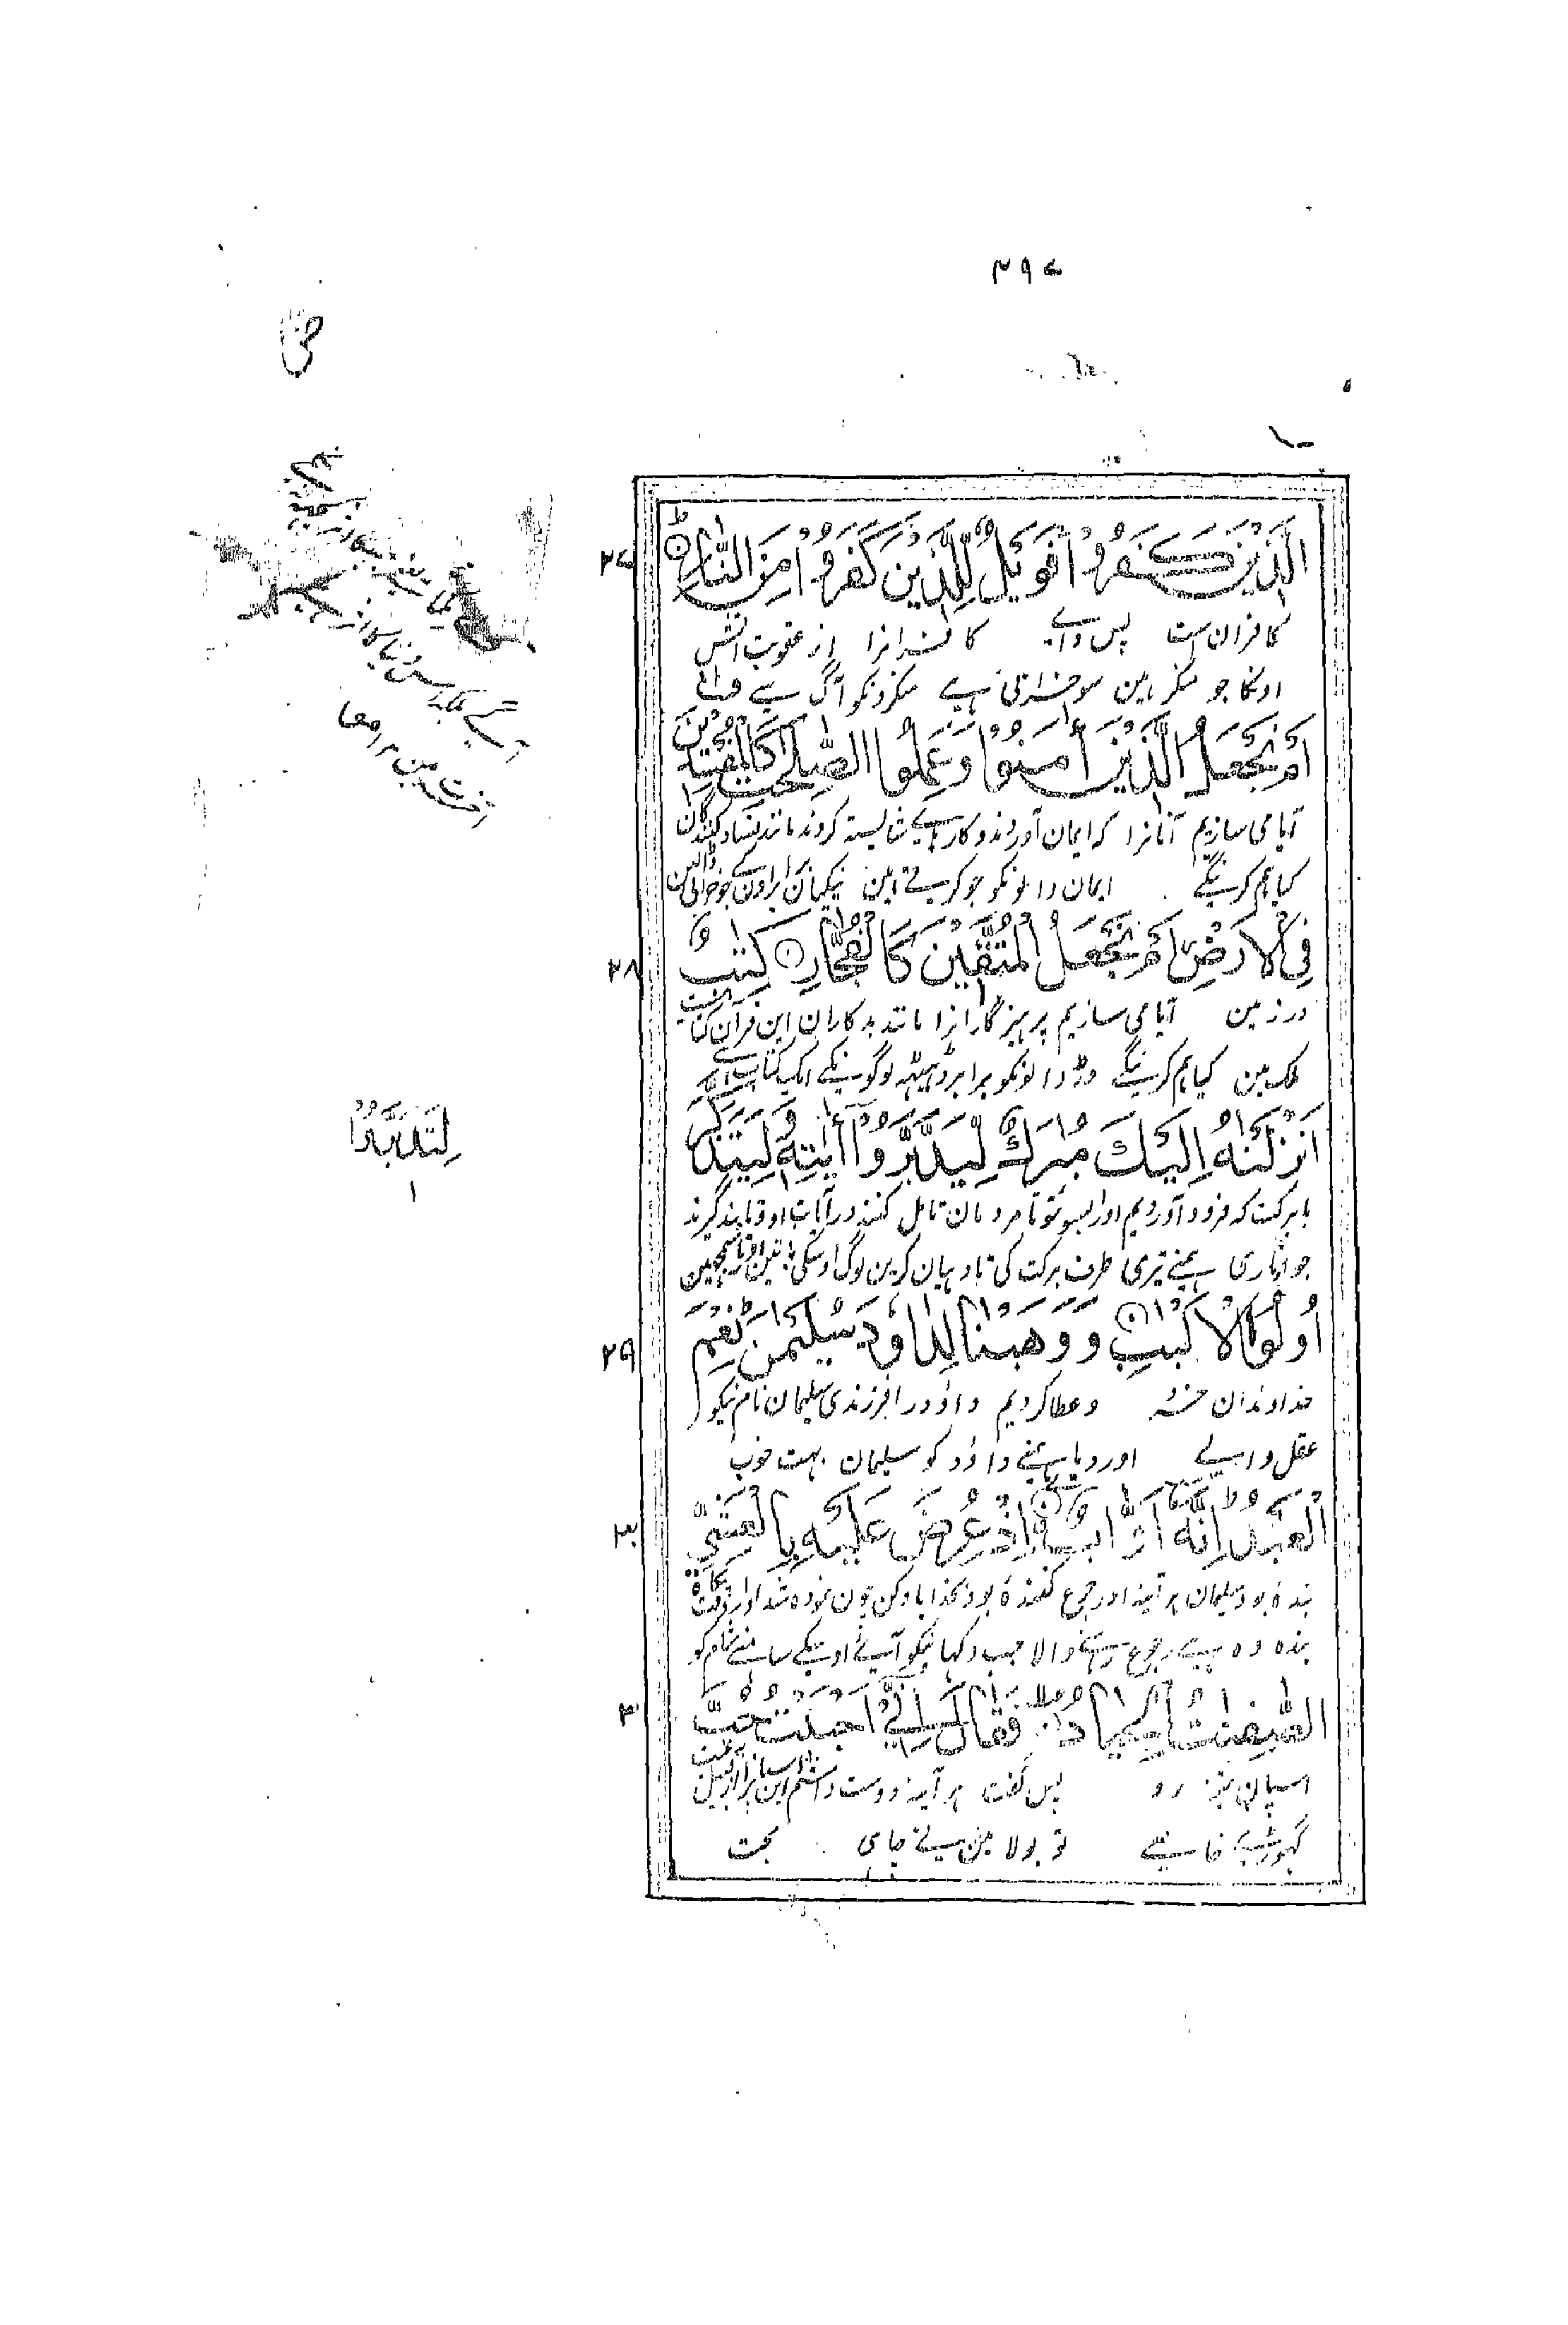 ۳۹۷
ص
الَّذِيْنَ كَفَرُوْا فَوَيْلٌ لِّلَّذِيْنَ كَفَرُوْا مِنَ النَّارِ
۲۷
کافران ست پس وای کافرانرا از عقوبت آتش
اونکا جو منکر ہین سو خرابی ہے منکرونکو آگ سے
اَمْ نَجْعَلُ الَّذِيْنَ اٰمَنُوْا وَعَمِلُوا الصّٰلِحٰتِ كَالْمُفْسِدِيْنَ
آیا می سازیم آنانرا که ایمان آوردند و کارہاے شایسته کردند مانند فساد کنندگان
کیا ہم کرینگے ایمان والونکو جو کرتے ہین نیکیان برابر اونکے جو خرابی ڈالین
فِى الْاَرْضِ اَمْ نَجْعَلُ الْمُتَّقِيْنَ كَالْفُجَّارِ كِتٰبٌ
۲۸
در زمین آیا می سازیم پرہیزگارانرا مانند بدکاران این قرآن کتابیست
ملک مین کیا ہم کرینگے ڈر والونکو برابر ڈہیٹہ لوگونکے ایک کتاب ہے
اَنْزَلْنٰهُ اِلَيْكَ مُبٰرَكٌ لِّيَدَّبَّرُوْٓا اٰيٰتِهٖ وَلِيَتَذَكَّرَ
لِتَدَبَّرُوْا
با برکت که فرود آوردیم او را بسوئ تو تا مردمان تامل کنند در آیات او و تا پند گیرند
جو اوتاری ہمنے تیری طرف برکت کی تا دہیان کرین لوگ اوسکی باتین اور تا سمجہین
اُولُوا الْاَلْبٰبِ وَوَهَبْنَا لِدَاوٗدَ سُلَيْمٰنَ نِعْمَ
۲۹
خداوندان خرد و عطا کردیم داؤد را فرزندی سلیمان نام نیکو
عقل والے اور دیا ہمنے داؤد کو سلیمان بہت خوب
الْعَبْدُ اِنَّهٗٓ اَوَّابٌ اِذْ عُرِضَ عَلَيْهِ بِالْعَشِىِّ
۳۰
بندہ بود سلیمان ہر آینہ او رجوع کنندہ بود بخدا یاد کن چون نمودہ شد
بندہ وہ ہے رجوع رہنے والا جب دکہانیکو آئے اوسکے سامنے شام کو
الصّٰفِنٰتُ الْجِيَادُ فَقَالَ اِنِّىْٓ اَحْبَبْتُ حُبَّ
۳۱
اسپان تیز رو پس گفت ہر آینہ دوست داشتم
گہوڑے خاصے تو بولا مین نے چاہی محبت